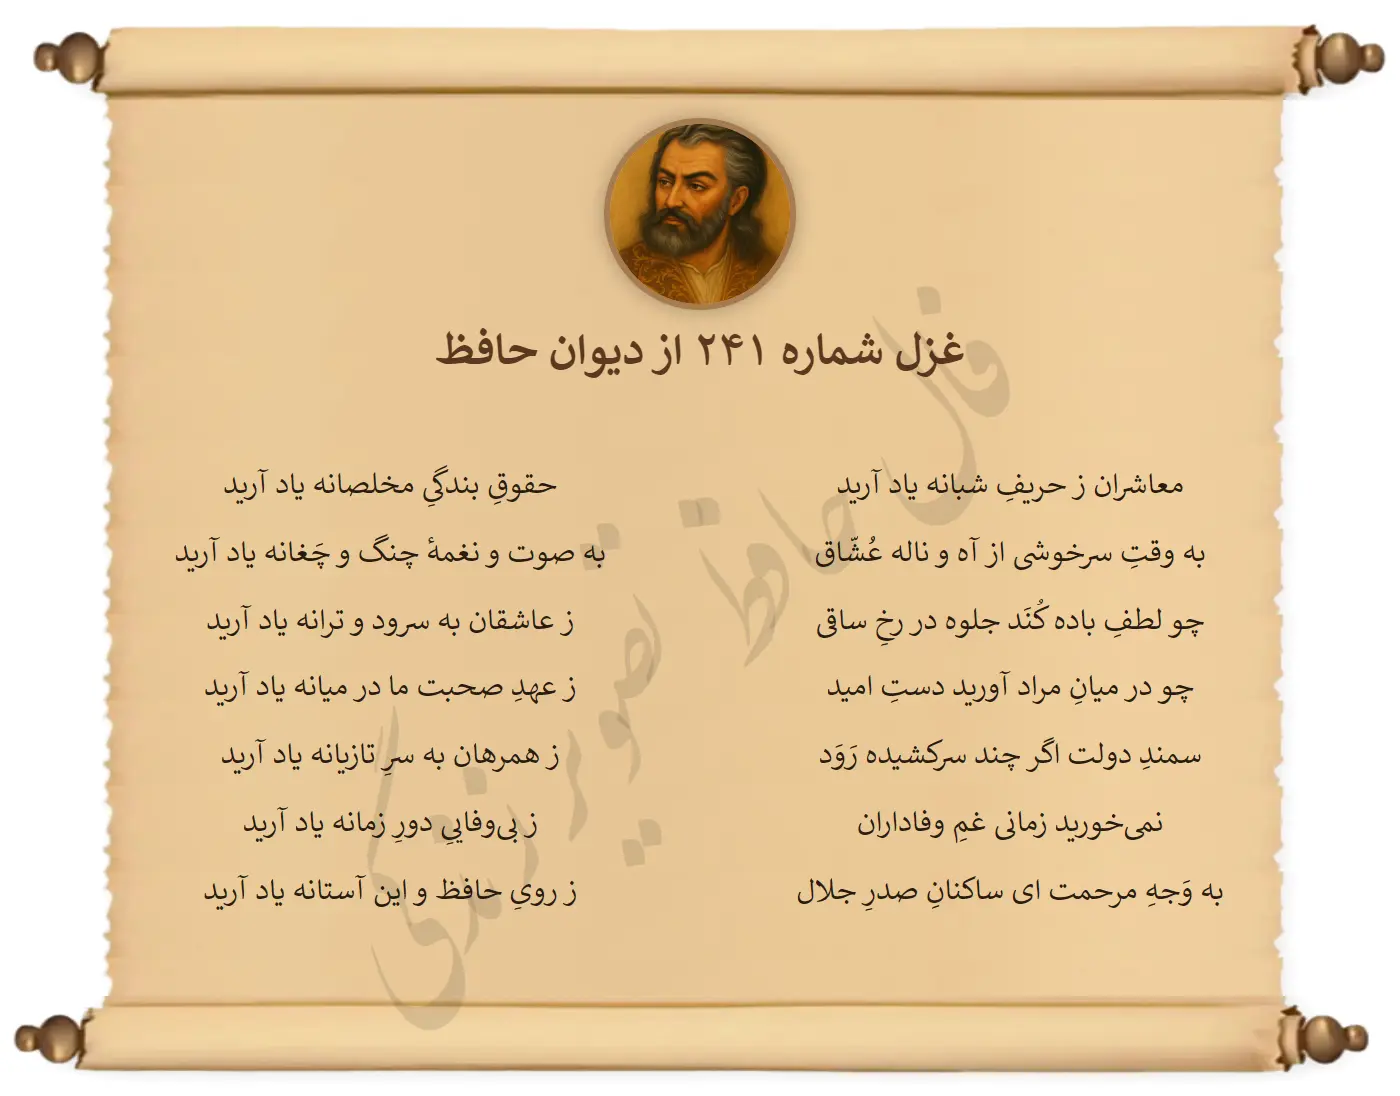 غزل شماره ۲۴۱ از دیوان حافظ
معاشران ز حریفِ شبانه یاد آرید
حقوقِ بندگیِ مخلصانه یاد آرید
به وقتِ سرخوشی از آه و ناله عُشّاق
به صوت و نغمهٔ چنگ و چَغانه یاد آرید
چو لطفِ باده کُنَد جلوه در رخِ ساقی
ز عاشقان به سرود و ترانه یاد آرید
چو در میانِ مراد آورید دستِ امید
ز عهدِ صحبت ما در میانه یاد آرید
سمندِ دولت اگر چند سرکشیده رَوَد
ز همرهان به سرِ تازیانه یاد آرید
نمی‌خورید زمانی غمِ وفاداران
ز بی‌وفاییِ دورِ زمانه یاد آرید
به وَجهِ مرحمت ای ساکنانِ صدرِ جلال
ز رویِ حافظ و این آستانه یاد آرید
فال حافظ تصویر زندگی